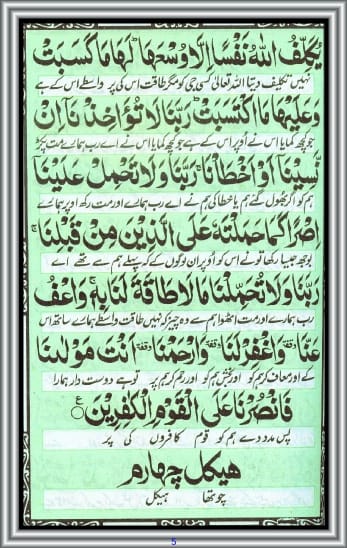 يُكَلِّفُ اللّٰهُ نَفْسًا اِلَّا وُسْعَهَا ؕ لَهَا مَا كَسَبَتْ
نہیں تکلیف دیتا اللہ تعالیٰ کسی جی کو مگر طاقت اس کی پر واسطے اس کے ہے
وَعَلَيْهَا مَا اكْتَسَبَتْ ؕ رَبَّنَا لَا تُؤَاخِذْنَاۤ اِنْ
جو کچھ کمایا اس نے اوپر اس کے ہے جو کچھ کمایا اس نے اے رب ہمارے مت پکڑ
نَّسِيْنَاۤ اَوْ اَخْطَاْنَا ۚ رَبَّنَا وَلَا تَحْمِلْ عَلَيْنَاۤ
ہم کو اگر بھول گئے ہم یا خطا کی ہم نے اے رب ہمارے اور مت رکھ اوپر ہمارے
اِصْرًا كَمَا حَمَلْتَهٗ عَلَى الَّذِيْنَ مِنْ قَبْلِنَا ۚ
بوجھ جیسا رکھا تو نے اس کو اوپر ان لوگوں کے کہ پہلے ہم سے تھے اے
رَبَّنَا وَلَا تُحَمِّلْنَا مَا لَا طَاقَةَ لَنَا بِهٖ ۚ وَاعْفُ
رب ہمارے اور مت اٹھوا ہم سے وہ چیز کہ نہیں طاقت واسطے ہمارے ساتھ اس
عَنَّا وقفة وَاغْفِرْ لَنَا وقفة وَارْحَمْنَا وقفة اَنْتَ مَوْلٰىنَا
کے اور معاف کر ہم کو اور بخش ہم کو اور رحم کر ہم پر تو ہے دوست دار ہمارا
فَانْصُرْنَا عَلَى الْقَوْمِ الْكٰفِرِيْنَ ۝ ع
پس مدد دے ہم کو قوم کافروں کی پر
هیکل چهارم
چوتھا ہیکل
5